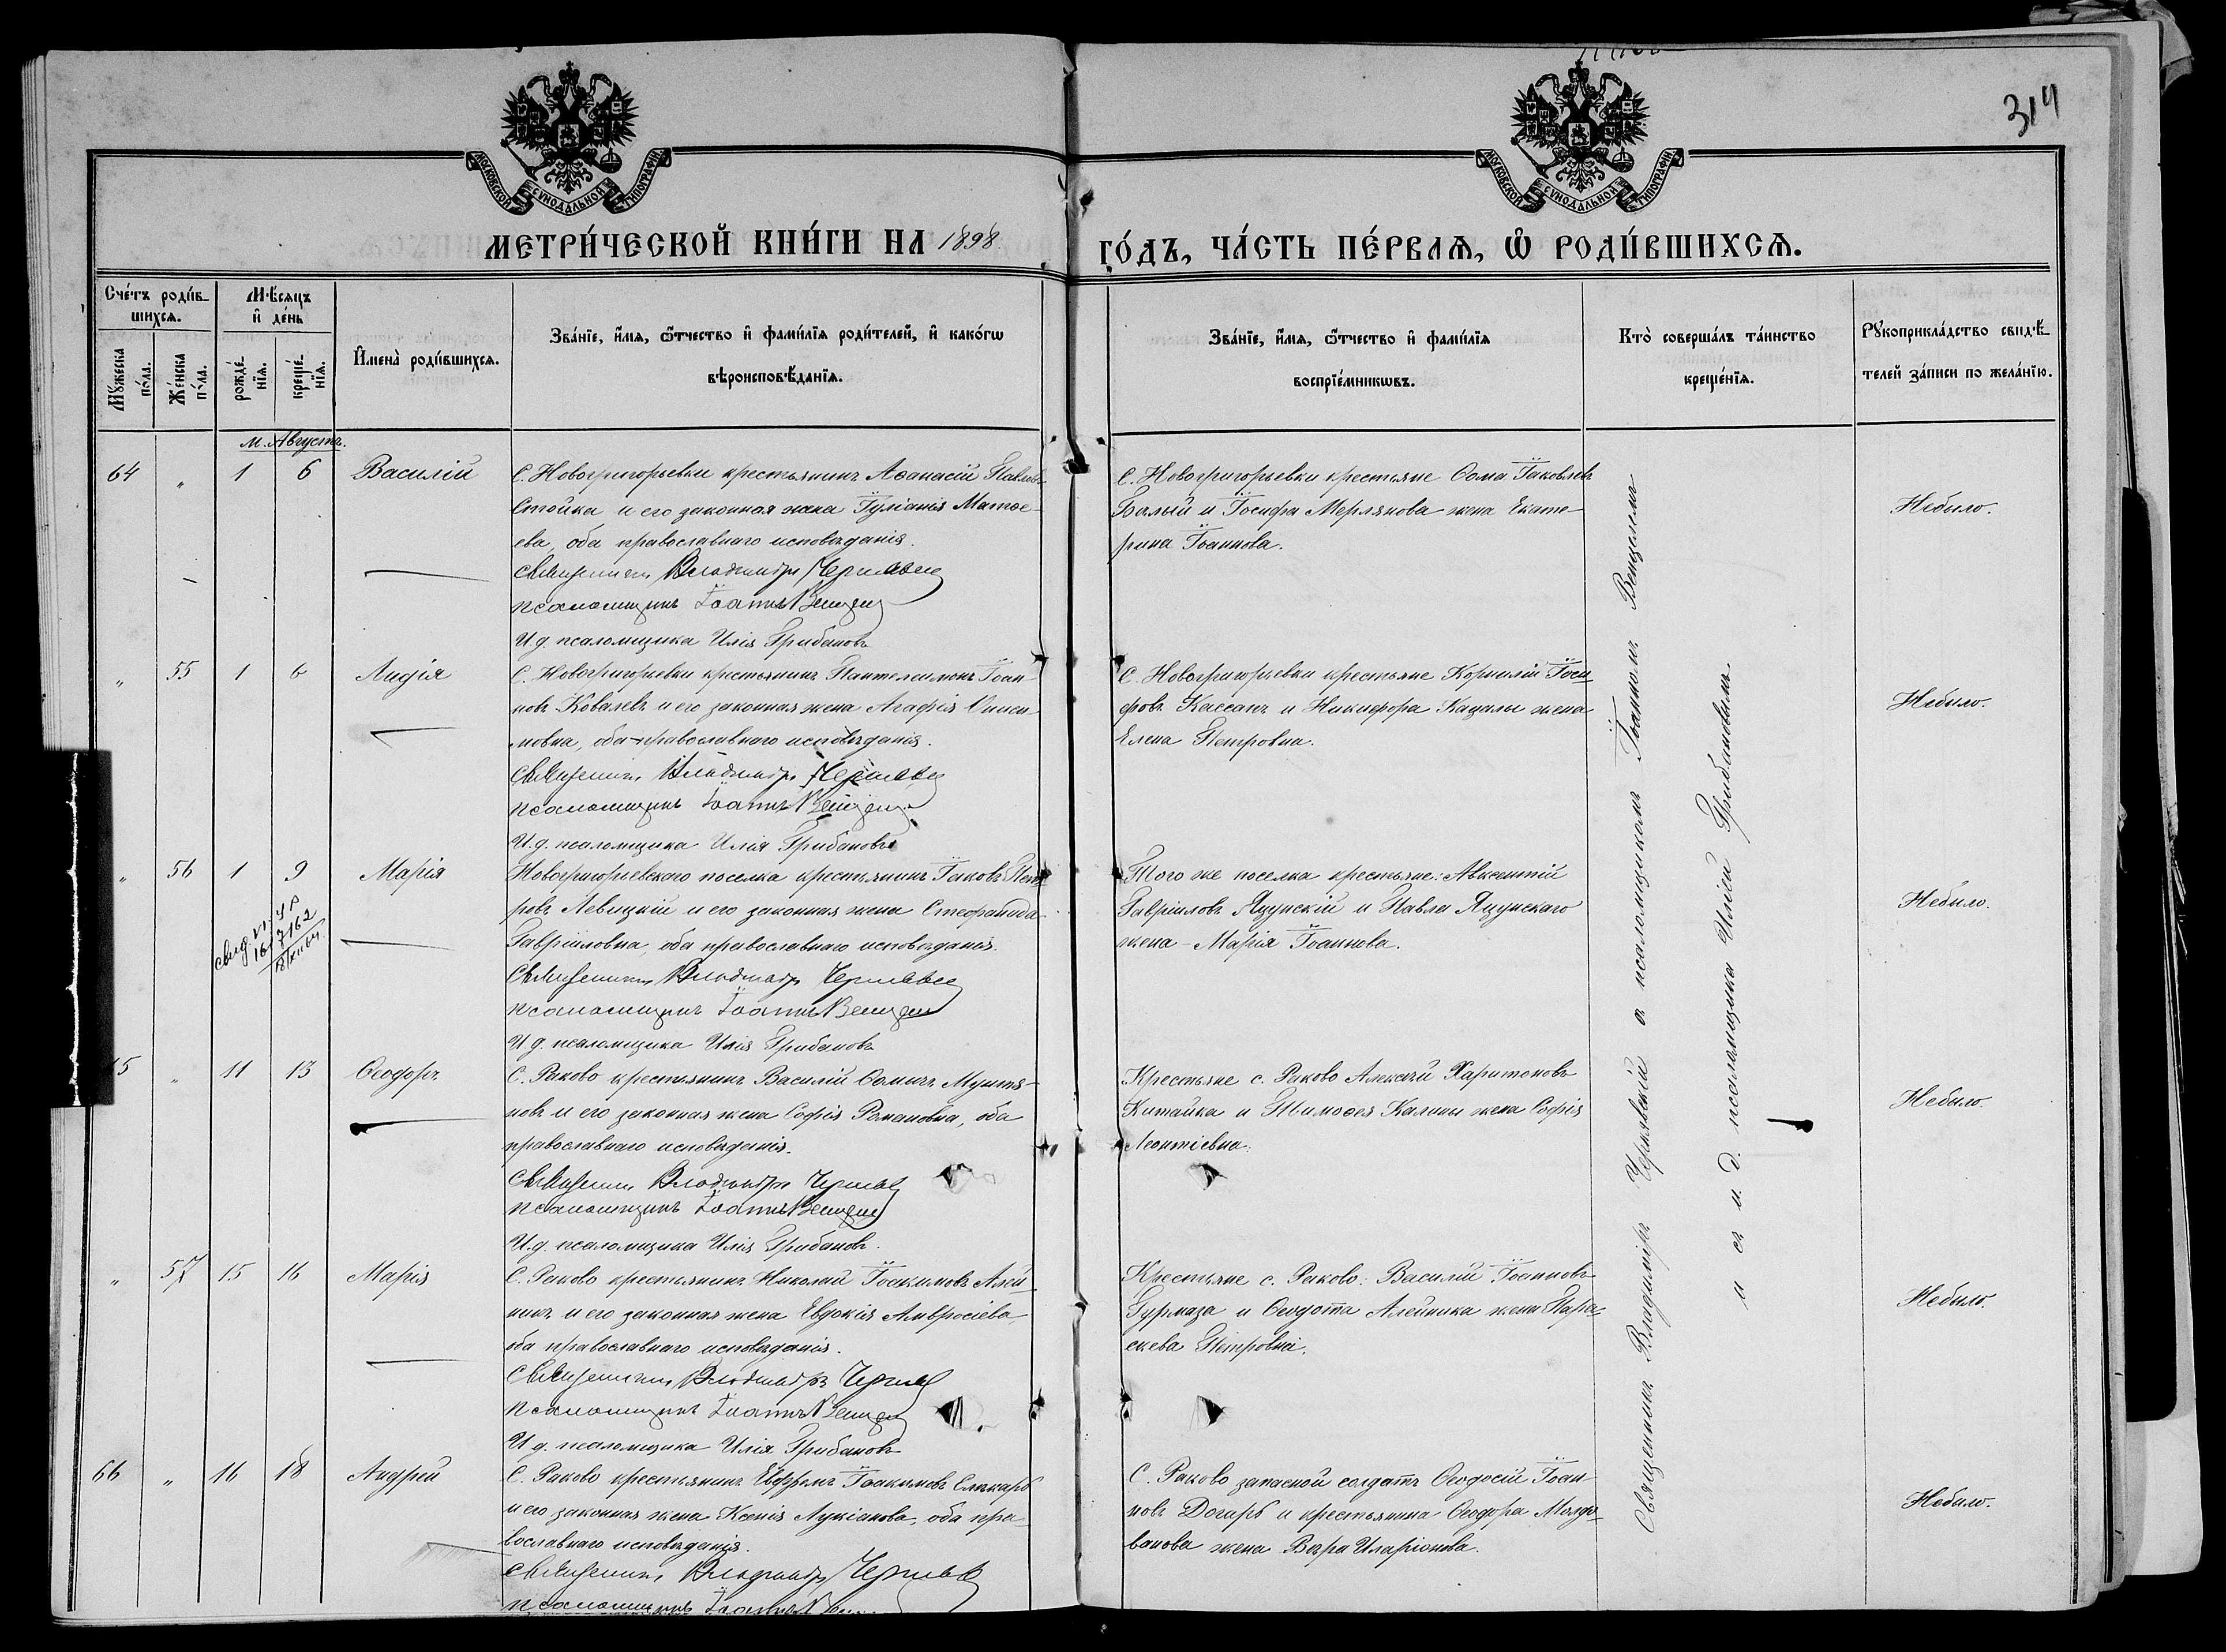 314
МОСКОВСКОЙ СѴНОДАЛЬНОЙ ТИПОГРАФІИ
МОСКОВСКОЙ СѴНОДАЛЬНОЙ ТИПОГРАФІИ
МЕТРИ́ЧЕСКОЙ КНИ́ГИ НА 1898
ГО́ДЪ, ЧА́СТЬ ПЕ́РВАѦ, Ѽ РОДИ́ВШИХСѦ.
Сче́тъ роди́в-
шихсѧ.
Мꙋ́жеска
по́ла.
Же́нска
по́ла.
Мѣ́сѧцъ
и҆ де́нь
рожде́-
нїѧ.
креще́-
нїѧ.
И҆мена̀ роди́вшихсѧ.
Зва́нїе, и҆́мѧ, ѻ҆́тчество и҆ фами́лїѧ роди́телей, и҆ како́гѡ
вѣроисповѣ́данїѧ.
Зва́нїе, и҆́мѧ, ѻ҆́тчество и҆ фами́лїѧ
воспрїе́мникѡвъ.
Кто̀ соверша́лъ та́инство
креще́нїѧ.
Рꙋкоприкла́дство свидѣ́-
телей за́писи по жела́нїю.
м. Августъ.
64 " 1 6 Василій
С. Новогригорьевки крестьянинъ Аѳанасій Павловъ
Стойка и его законная жена Іуліанія Матѳе-
ева, оба православнаго исповѣданія.
Священникъ Владимiръ Чернявскій
псаломщикъ Іоаннъ Венцеля
И д. псаломщика Илія Грибановъ
С. Новогригорьевки крестьяне Ѳома Іаковлевъ
Бѣлый и Іосифа Мерлянова жена Екате-
рина Іоаннова.
Небыло.
" 55 1 6 Лидія
С. Новогригорьевки крестьянинъ Пантелеимонъ Іоан-
новъ Ковалевъ и его законная жена Агафія Ониси-
мовна, оба православнаго исповѣданія.
Священникъ Владимiръ Чернявскій
псаломщикъ Іоаннъ Венцеля
И.д. псаломщика Илія Грибановъ
С. Новогригорьевки крестьяне Корнилій Іоси-
фовъ Кассапъ и Никифора Кацалы жена
Елена Петровна.
Небыло.
" 56 1 9 Марія
Новогригориевскаго поселка крестьянинъ Іаковъ Пет-
ровъ Левицкій и его законная жена Стефанида
Гавріиловна, оба православнаго исповѣданія.
Священникъ Владимiръ Чернявскій
псаломщикъ Іоаннъ Венцеля
И д. псаломщика Илія Грибановъ
Того же поселка крестьяне: Авксентій
Гавріиловъ Яцунскій и Павла Яцунскаго
жена - Марія Іоаннова.
Небыло.
5 " 11 13 Ѳеодоръ
С. Раково крестьянинъ Василій Ѳомичъ Мунтя-
новъ и его законная жена Софія Романовна, оба
православнаго исповѣданія.
Священникъ Владимiръ Чернявскій
псаломщикъ Іоаннъ Венцеля
И.д. псаломщика Илія Грибановъ.
Крестьяне с. Раково Алексѣй Харитоновъ
Китайка и Тимоѳея Калины жена Софія
Леонтіевна.
Небыло.
" 57 15 16 Марія
С. Раково крестьянинъ Николай Іоакимовъ Алей-
никъ и его законная жена Евдокія Амвросіева,
оба православнаго исповѣданія.
Священникъ Владимiръ Чернявскій
псаломщикъ Іоаннъ Венцеля
И д. псаломщика Илія Грибановъ
Крестьяне с. Раково: Василій Іоанновъ
Гурмаза и Ѳеодота Алейника жена Пара-
скева Петровна.
Небыло.
66 " 16 18 Андрей
С. Раково крестьянинъ Евфимъ Іоакимовъ
и его законная жена Ксенія Лукіанова, оба пра-
вославнаго исповѣданія.
Священникъ Владимiръ Чернявскій
псаломщикъ Іоаннъ
С. Раково запасной солдатъ Ѳеодосій Іоан-
новъ Догарь и крестьянина Ѳеодора Молдо-
ванова жена Вѣра Иларіонова.
Небыло.
Священникъ Владиміръ Чернявскій съ псаломщикомъ Іоанномъ Венцелемъ
и съ и. д. псаломщика Иліей Грибановымъ